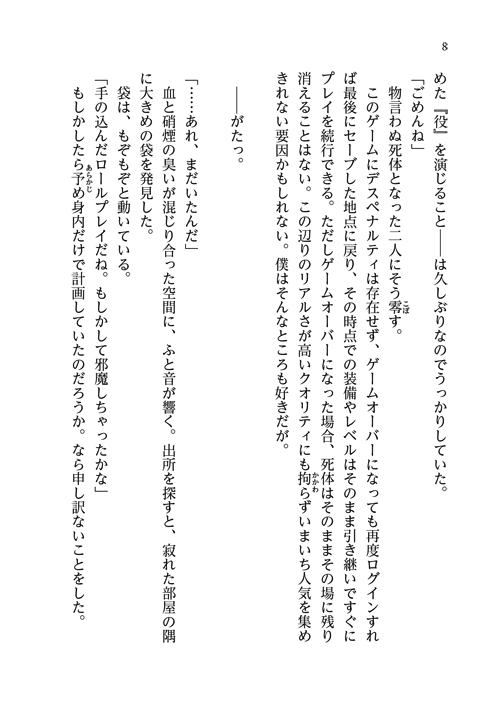 8
めた『役』を演じること――は久しぶりなのでうっかりしていた。
「ごめんね」
物言わぬ死体となった二人にそう零す。
こぼ
このゲームにデスペナルティは存在せず、ゲームオーバーになっても再度ログインすれ
ば最後にセーブした地点に戻り、その時点での装備やレベルはそのまま引き継いですぐに
プレイを続行できる。ただしゲームオーバーになった場合、死体はそのままその場に残り
消えることはない。この辺りのリアルさが高いクオリティにも拘らずいまいち人気を集め
かかわ
きれない要因かもしれない。僕はそんなところも好きだが。
――がたっ。
「……あれ、まだいたんだ」
血と硝煙の臭いが混じり合った空間に、ふと音が響く。出所を探すと、寂れた部屋の隅
に大きめの袋を発見した。
袋は、もぞもぞと動いている。
「手の込んだロールプレイだね。もしかして邪魔しちゃったかな」
もしかしたら予め身内だけで計画していたのだろうか。なら申し訳ないことをした。
あらかじ